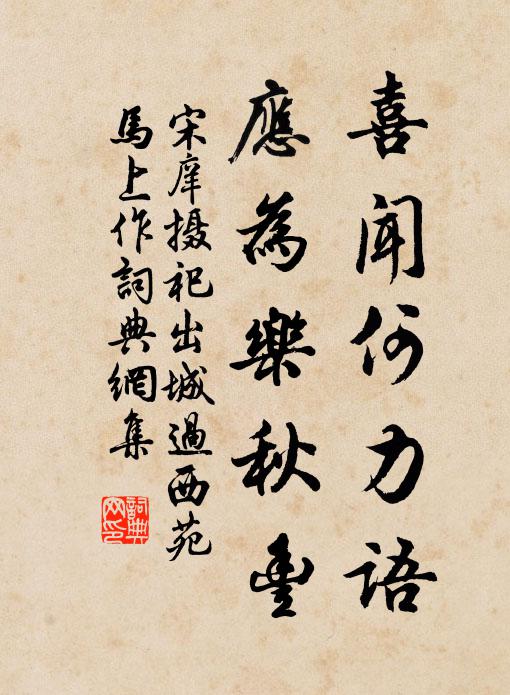 喜聞何力語
應為樂秋豐
宋庠摄祀出城過西苑
馬上作詞典網集
詞典網印